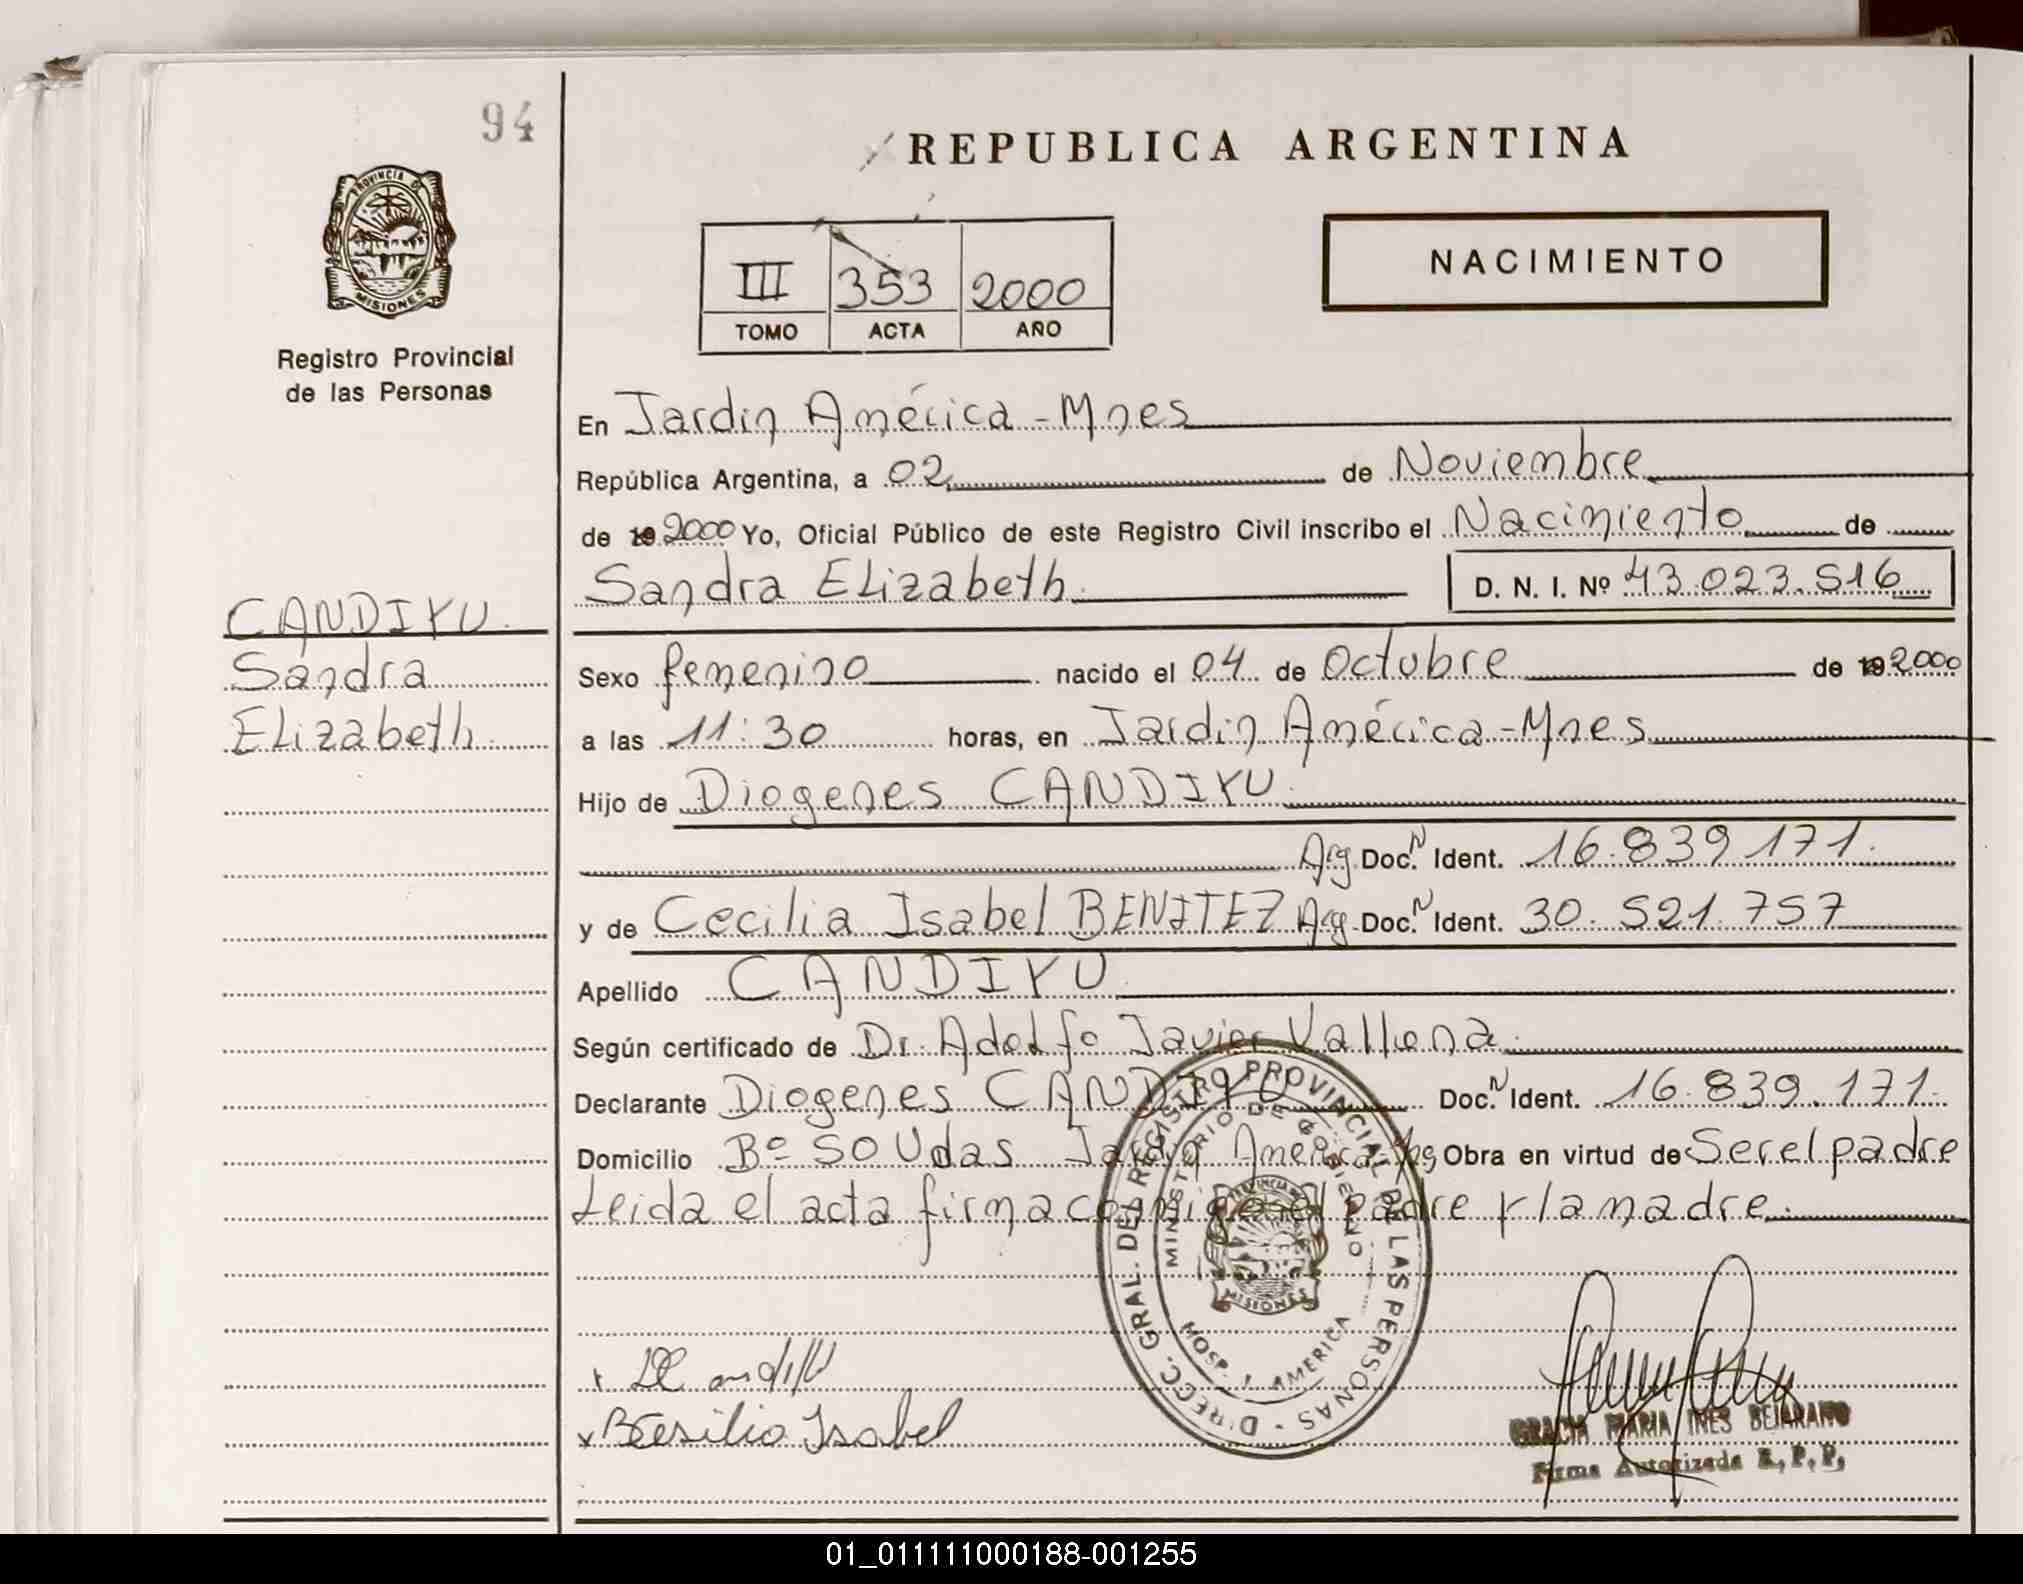 94
REPUBLICA ARGENTINA
PROVINCIA DE
MISIONES
Registro Provincial
de las Personas
III 353 2000
TOMO ACTA AÑO
NACIMIENTO
En Jardin América - Mnes
República Argentina, a 02 de Noviembre
de 19 2000 Yo, Oficial Público de este Registro Civil inscribo el Nacimiento de
Sandra Elizabeth D. N. I. Nº 43.023.516
CANDIYU
Sandra
Elizabeth
Sexo femenino nacido el 04 de Octubre de 19 2000
a las 11:30 horas, en Jardin América - Mnes
Hijo de Diogenes CANDIYU
Arg. Doc. N Ident. 16.839.171.
y de Cecilia Isabel BENITEZ Arg. Doc. N Ident. 30.521.757
Apellido CANDIYU
Según certificado de Dr. Adolfo Javier
Declarante Diogenes CANDIYU Doc. N Ident. 16.839.171.
Domicilio Bº 50 Udas Jardin América Obra en virtud de Ser el padre
Leida el acta firma conmigo el padre y la madre
DIRECC. GRAL. DEL REGISTRO PROVINCIAL DE LAS PERSONAS
MINISTERIO DE GOBIERNO
PROVINCIA DE
MISIONES
HOSP. J. AMERICA
Isabel
GRACIA MARIA INES BEJARANO
Firma Autorizada R. P. P.
01_011111000188-001255